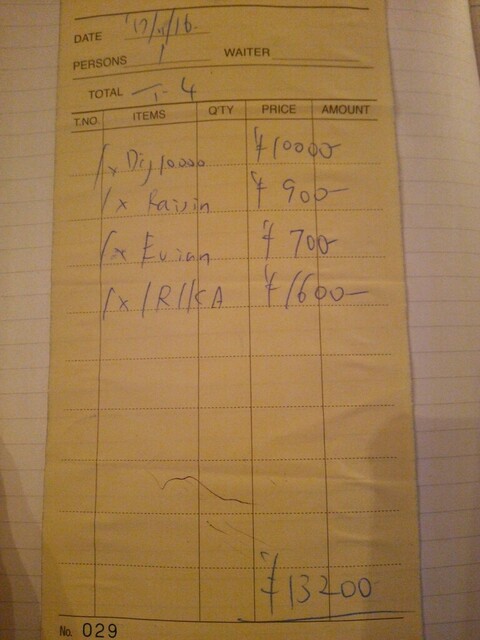 DATE '17/11/16
PERSONS 1 WAITER
TOTAL T-4
T.NO ITEMS Q'TY PRICE AMOUNT
1x Din 10000 ¥10000-
1x Raisin ¥900-
1x Evian ¥700-
1x IRIKA ¥1600-
¥13200
No. 029